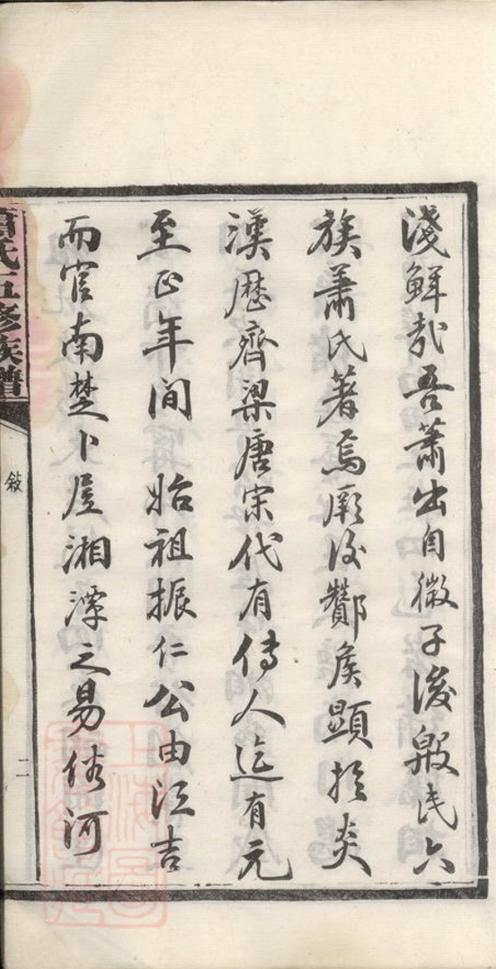 淺鮮哉吾蕭出自微子後殷民六
族蕭氏著焉厥後酇侯顯於炎
漢歷齊梁唐宋代有傳人迄有元
至正年間始祖振仁公由江吉
而官南楚卜居湘潭之易俗河
蕭氏五修族譜
敍
二